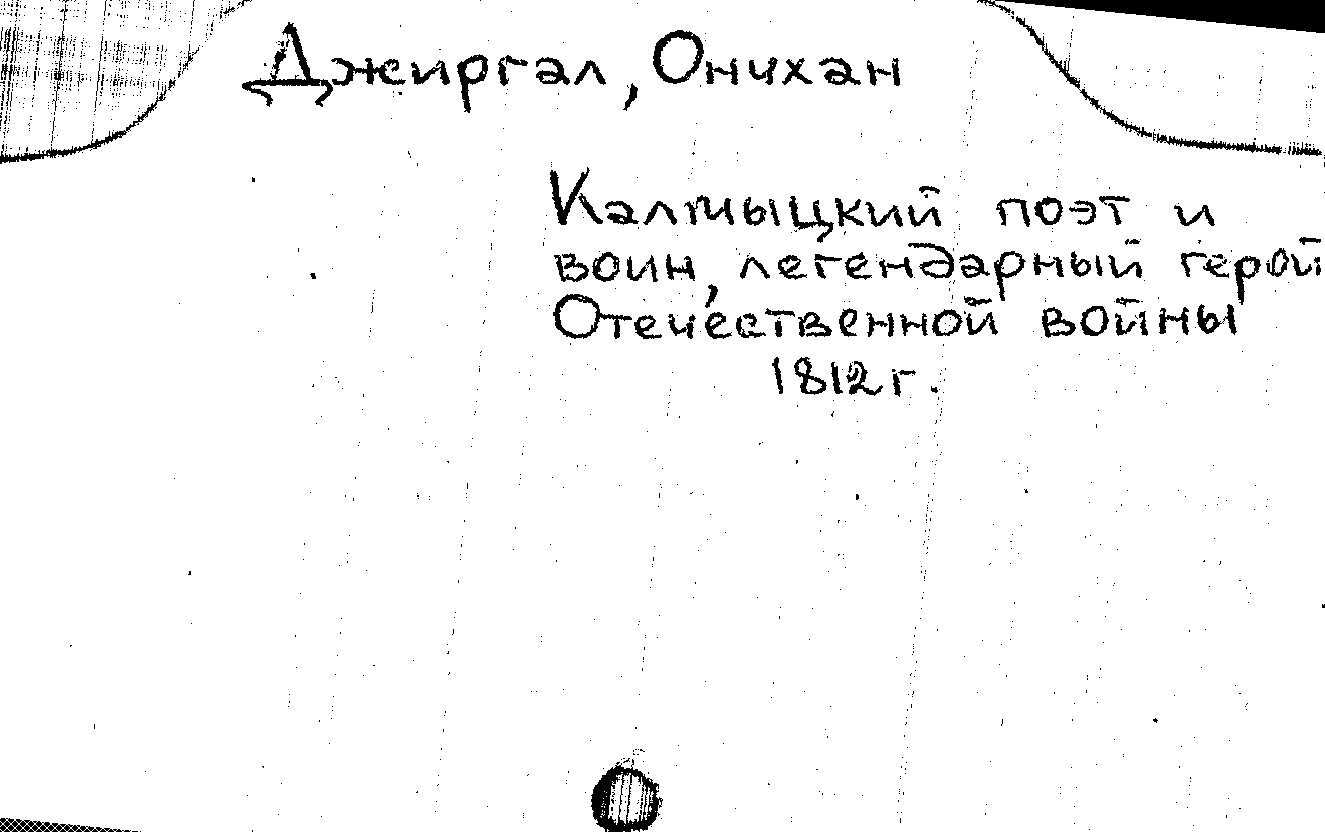 Джиргал, Ончхан
Калмыцкий поэт и
воин, легендарный герой
Отечественной войны
1812 г.